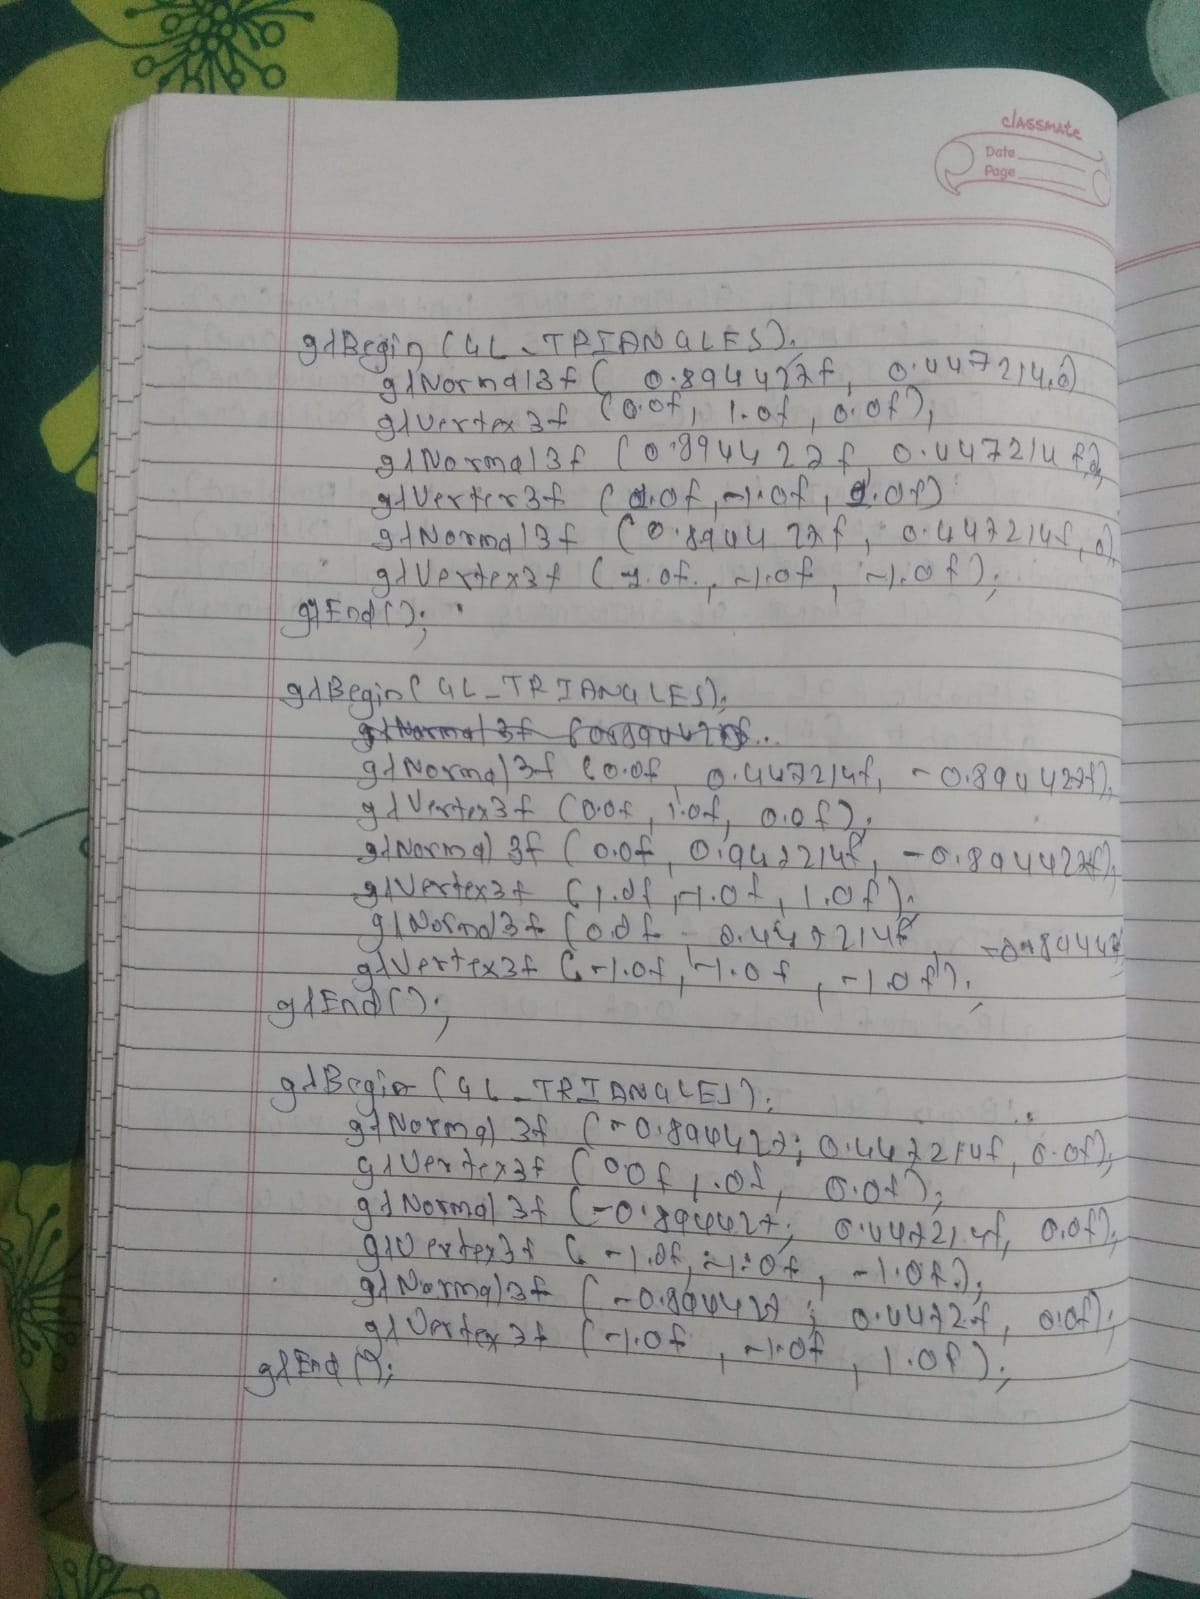 classmate
Date
Page
glBegin (GL_TRIANGLES);
glNormal3f ( 0.894427f, 0.447214,0)
glVertex3f (0.0f, 1.0f, 0.0f);
glNormal3f (0.894427f 0.447214f,
glVertex3f ( .0f, -1.0f, .0f)
glNormal3f (0.894427f, 0.447214f, 0)
glVertex3f (1.0f, -1.0f, -1.0f);
glEnd();
glBegin(GL_TRIANGLES);
glNormal3f (0.0f 0.447214f, -0.894427f);
glVertex3f (0.0f, 1.0f, 0.0f);
glNormal3f (0.0f, 0.947214f, -0.894427f);
glVertex3f (1.0f, -1.0f, 1.0f);
glNormal3f (0.0f, 0.447214f, -0.89442
glVertex3f (-1.0f, -1.0f, -1.0f);
glEnd();
glBegin (GL_TRIANGLES);
glNormal3f (-0.894427; 0.447214f, 0.0f);
glVertex3f (00f 1.0f, 0.0f);
glNormal3f (-0.894427; 0.447214f, 0.0f);
glVertex3f (-1.0f, -1.0f, -1.0f);
glNormal3f (-0.894427; 0.4472f, 0.0f);
glVertex3f (-1.0f, -1.0f, 1.0f);
glEnd();